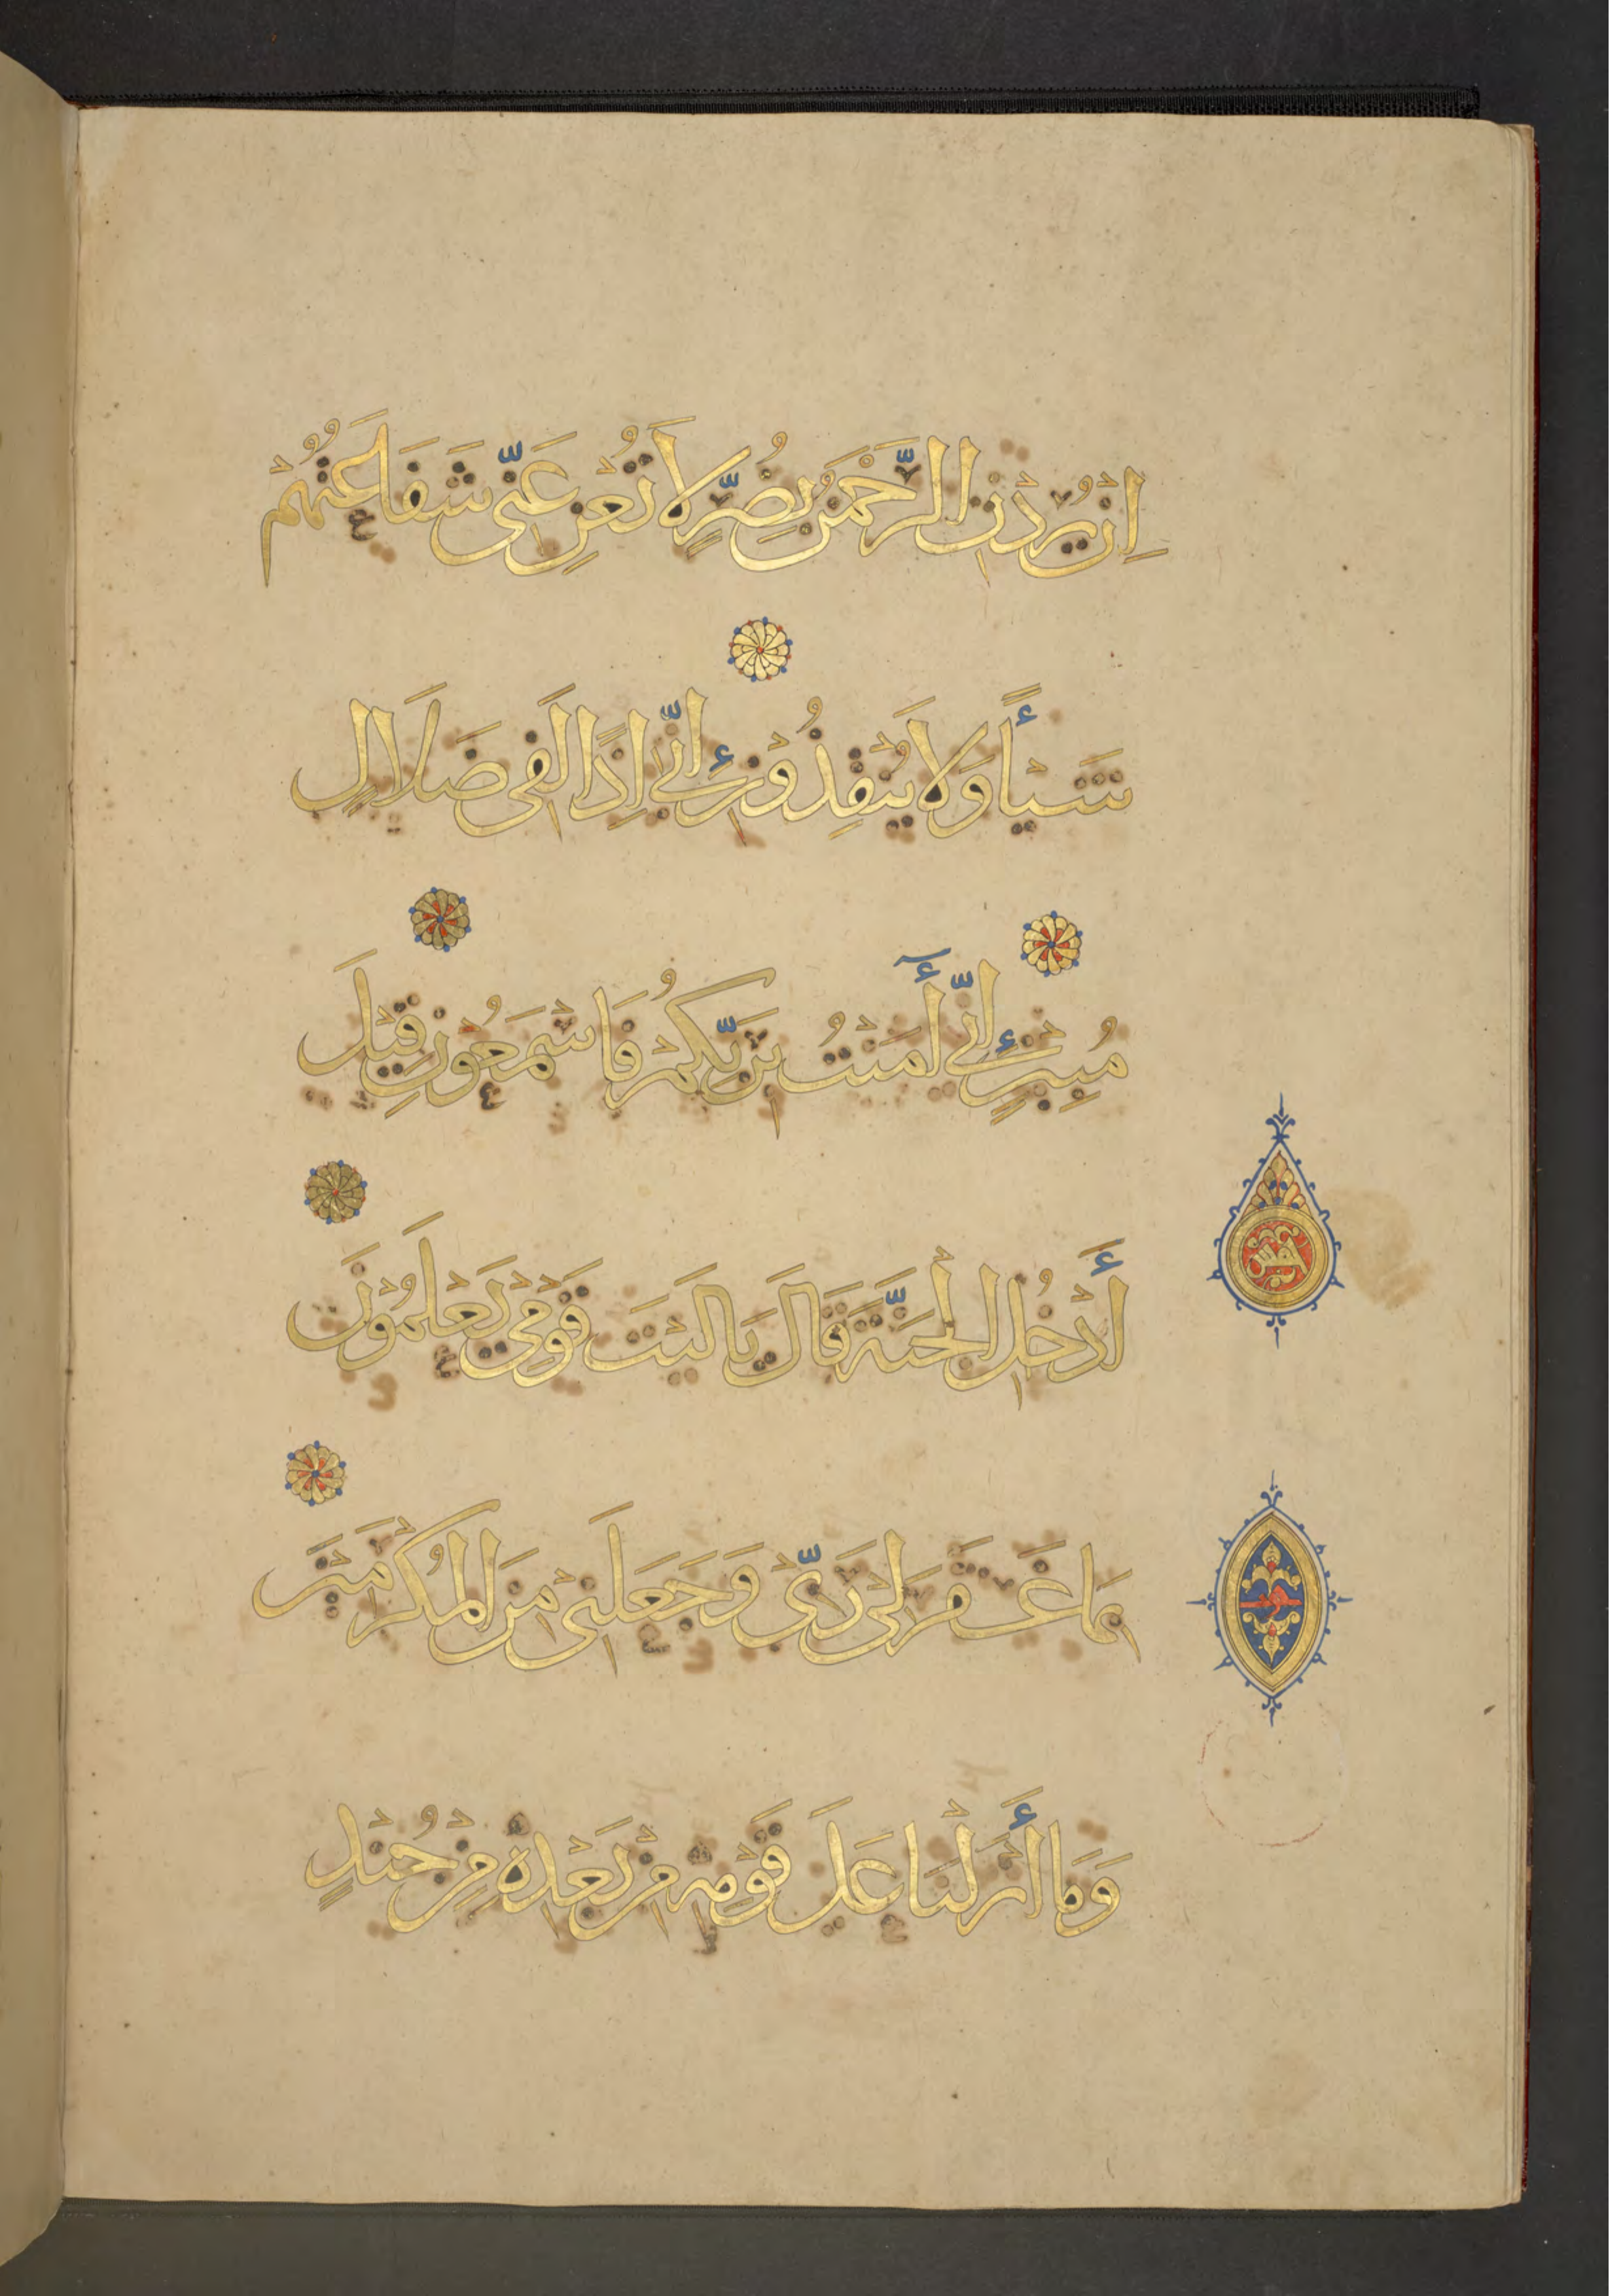 اِنْ يُرِدْنِ الرَّحْمَنُ بِضُرٍّ لَا تُغْنِ عَنِّي شَفَاعَتُهُمْ
شَيْأً وَلَا يُنْقِذُوْنِ إِنِّي اِذًا لَفِي ضَلَالٍ
مُبِيْنٍ إِنِّي أٓمَنْتُ بِرَبِّكُمْ فَاسْمَعُوْنِ قِيْلَ
أَدْخُلِ الْجَنَّةَ قَالَ يَالَيْتَ قَوْمِيْ يَعْلَمُوْنَ
بِمَا غَفَرَ لِيْ رَبِّيْ وَجَعَلَنِيْ مِنَ الْمُكْرَمِيْنَ
وَمَا أَنْزَلْنَا عَلَى قَوْمِهِ مِنْ بَعْدِهِ مِنْ جُنْدٍ